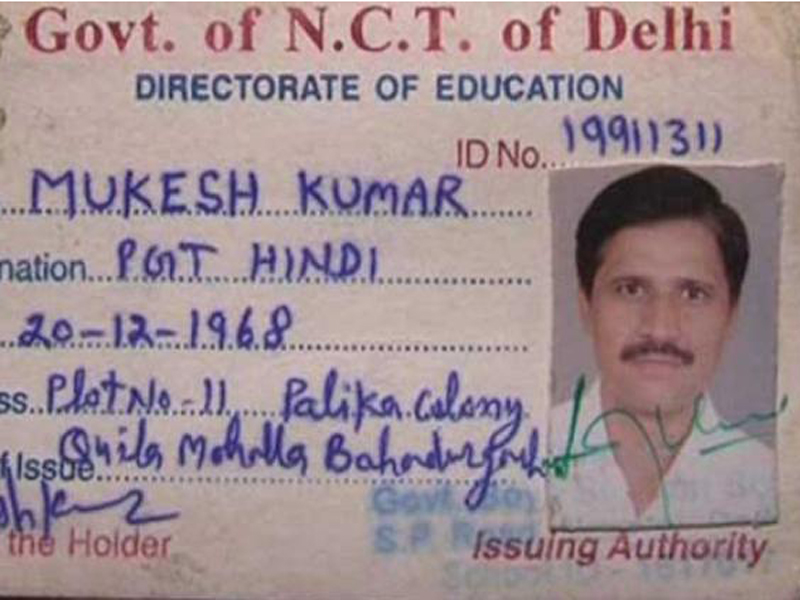 Govt. of N.C.T. of Delhi
DIRECTORATE OF EDUCATION
ID No... 19911311
MUKESH KUMAR
nation... PGT HINDI
20-12-1968
ss.. Plot No.-11 Palika Colony
Quila Mohalla Bahadurgarh
f Issue
Govt. Boy
S.P. Road
the Holder
Issuing Authority